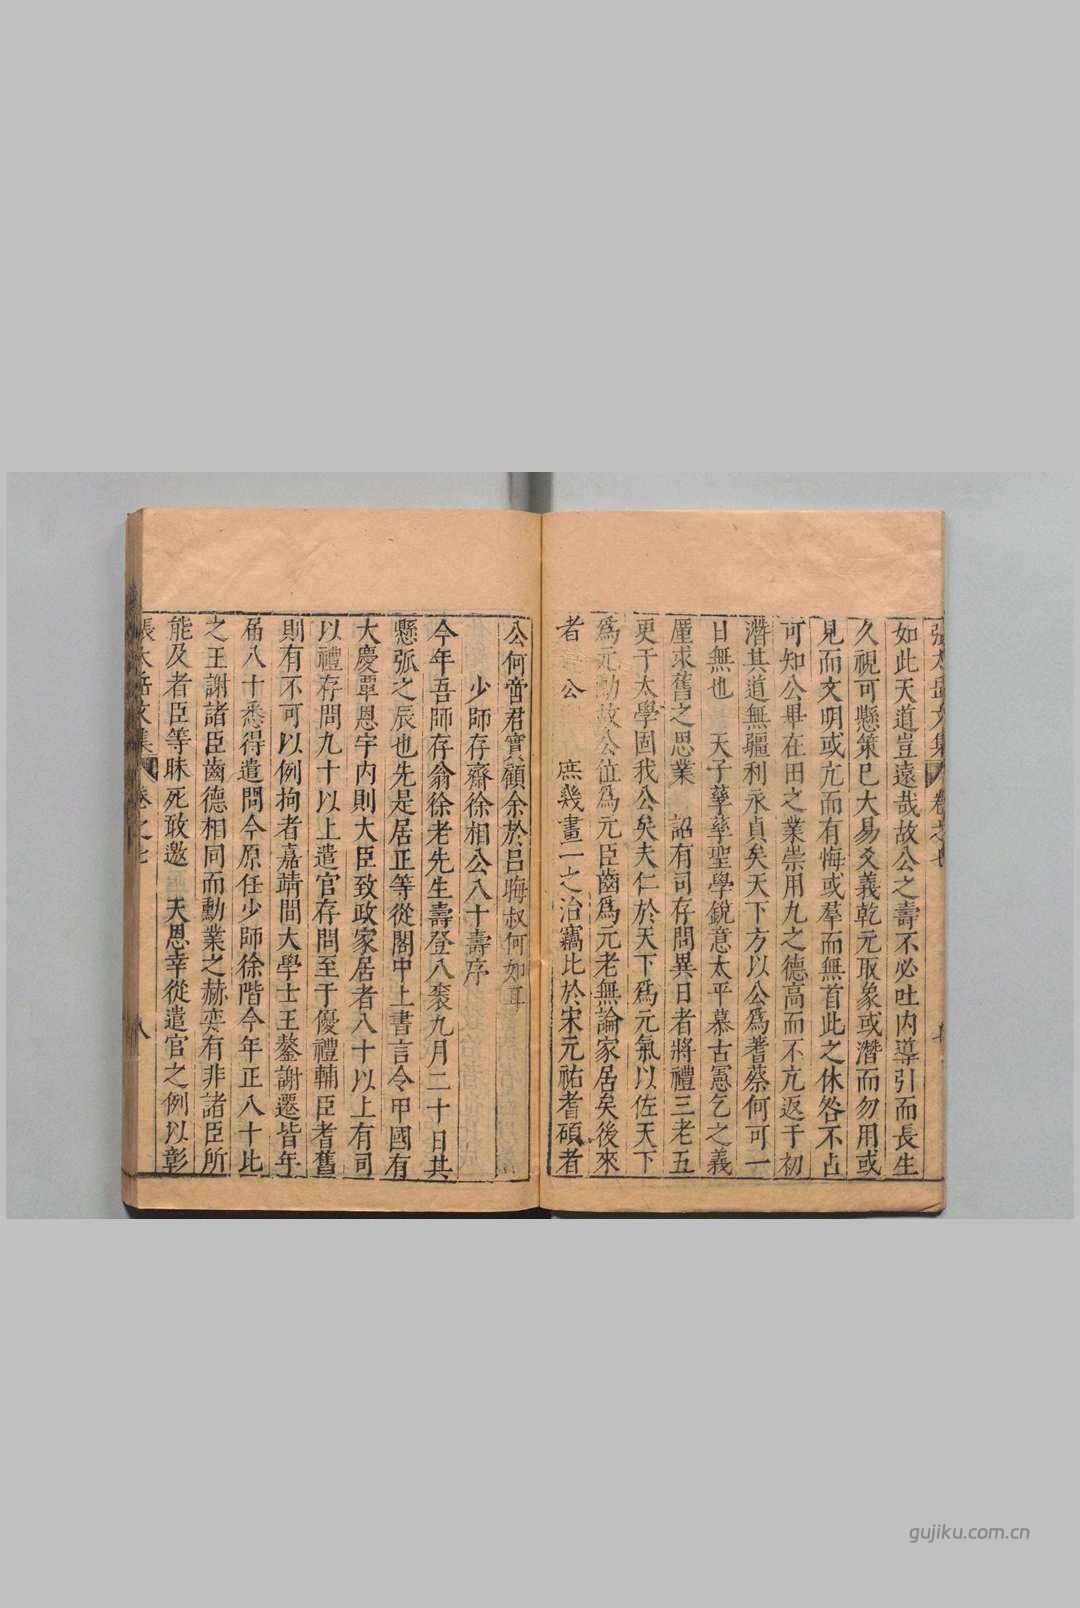 如此天道豈遠哉故公之壽不必吐内導引而長生
久視可懸策已大易爻義乾元取象或潛而勿用或
見而文明或亢而有悔或羣而無首此之休咎不占
可知公畢在田之業崇用九之德高而不亢返于初
潛其道無疆利永貞矣天下方以公爲蓍蔡何可一
日無也 天子孳孳聖學銳意太平慕古憲乞之義
厪求舊之思業 詔有司存問異日者將禮三老五
更于太學固我公矣夫仁於天下爲元氣以佐天下
爲元勳故公値爲元臣齒爲元老無論家居矣後來
者 公 庶幾畫一之治竊比於宋元祐耆碩者
公何啻君實顧余於呂晦叔何如耳
少師存齋徐相公八十壽序
今年吾師存翁徐老先生壽登八袠九月二十日其
懸弧之辰也先是居正等從閣中上書言令甲國有
大慶覃恩宇内則大臣致政家居者八十以上有司
以禮存問九十以上遣官存問至于優禮輔臣耆舊
則有不可以例拘者嘉靖間大學士王鏊謝遷皆年
届八十悉得遣問今原任少師徐階今年正八十比
之王謝諸臣齒德相同而勳業之赫奕有非諸臣所
能及者臣等昧死敢邀 天恩幸從遣官之例以彰
張太岳文集 卷之七 八
gujiku.com.cn